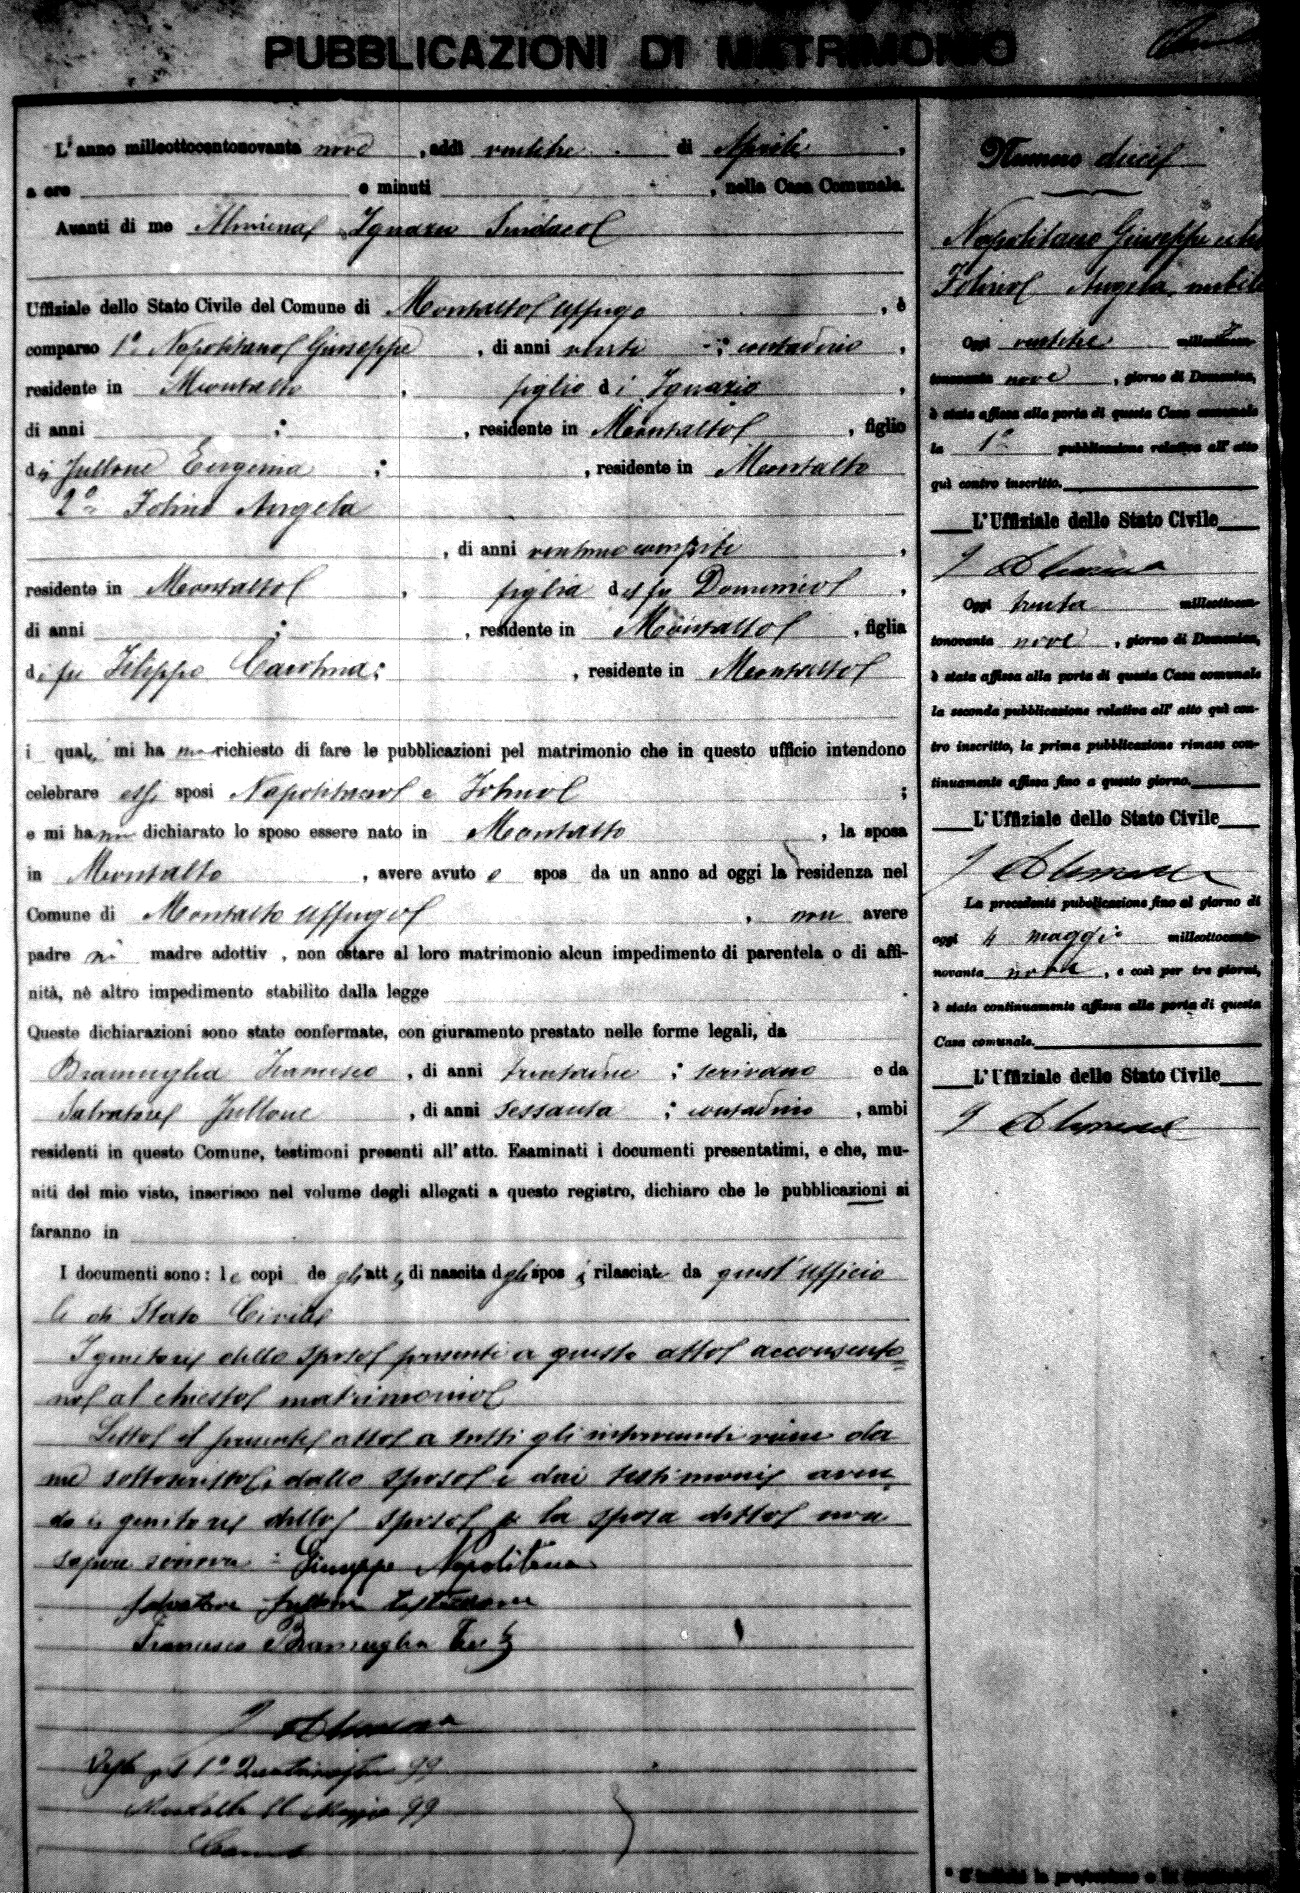 PUBBLICAZIONI DI MATRIMONIO
L'anno milleottocentonovanta nove, addi ventitre di Aprile,
a ore e minuti, nella Casa Comunale.
Avanti di me Alimena Ignazio Sindaco
Uffiziale dello Stato Civile del Comune di Montalto Uffugo, è
comparso 1º Napolitano Giuseppe, di anni venti; contadino,
residente in Montalto, figlio di Ignazio,
di anni ; , residente in Montalto, figlio
di Jullone Eugenia ; , residente in Montalto
2º Folino Angela
, di anni ventuno compiti,
residente in Montalto, figlia del fu Domenico,
di anni ; , residente in Montalto, figlia
di fu Filippo Carolina ; , residente in Montalto
i quali mi hanno richiesto di fare le pubblicazioni pel matrimonio che in questo ufficio intendono
celebrare essi sposi Napolitano e Folino ;
e mi hanno dichiarato lo sposo essere nato in Montalto, la sposa
in Montalto, avere avuto e spos da un anno ad oggi la residenza nel
Comune di Montalto Uffugo, non avere
padre nè madre adottiv , non ostare al loro matrimonio alcun impedimento di parentela o di affi-
nità, nè altro impedimento stabilito dalla legge .
Queste dichiarazioni sono state confermate, con giuramento prestato nelle forme legali, da
Bramuglia Francesco, di anni trentadue; scrivano e da
Salvatore Jullone, di anni sessanta; contadino, ambi
residenti in questo Comune, testimoni presenti all'atto. Esaminati i documenti presentatimi, e che, mu-
niti del mio visto, inserisco nel volume degli allegati a questo registro, dichiaro che le pubblicazioni si
faranno in
I documenti sono: le copi de gli atti di nascita degli sposi rilasciate da quest'ufficio
di Stato Civile
I genitori dello sposo presenti a questo atto acconsento=
no al chiesto matrimonio
Letto il presente atto a tutti gli intervenuti viene da
me sottoscritto, dallo sposo e dai testimoni aven
do i genitori dello sposo e la sposa detto non
sapere scrivere = Giuseppe Napolitano
Salvatore Jullone testimone
Francesco Bramuglia
I Alimena
1º 99
Montalto Maggio 99
Numero dieci
Napolitano Giuseppe
Folino Angela nubile
Oggi ventitre milleottocen-
tonovanta nove, giorno di Domenica,
è stata affissa alla porta di questa Casa comunale
la 1º pubblicazione relativa all'atto
quì contro inscritto.
L'Uffiziale dello Stato Civile
I Alimena
Oggi trenta milleottocen-
tonovanta nove, giorno di Domenica,
è stata affissa alla porta di questa Casa comunale
la seconda pubblicazione relativa all'atto quì con-
tro inscritto, la prima pubblicazione rimase con-
tinuamente affissa fino a questo giorno.
L'Uffiziale dello Stato Civile
I Alimena
La precedente pubblicazione fino al giorno di
oggi 4 maggio milleottocento-
novanta nove, e così per tre giorni,
è stata continuamente affissa alla porta di questa
Casa comunale.
L'Uffiziale dello Stato Civile
I Alimena